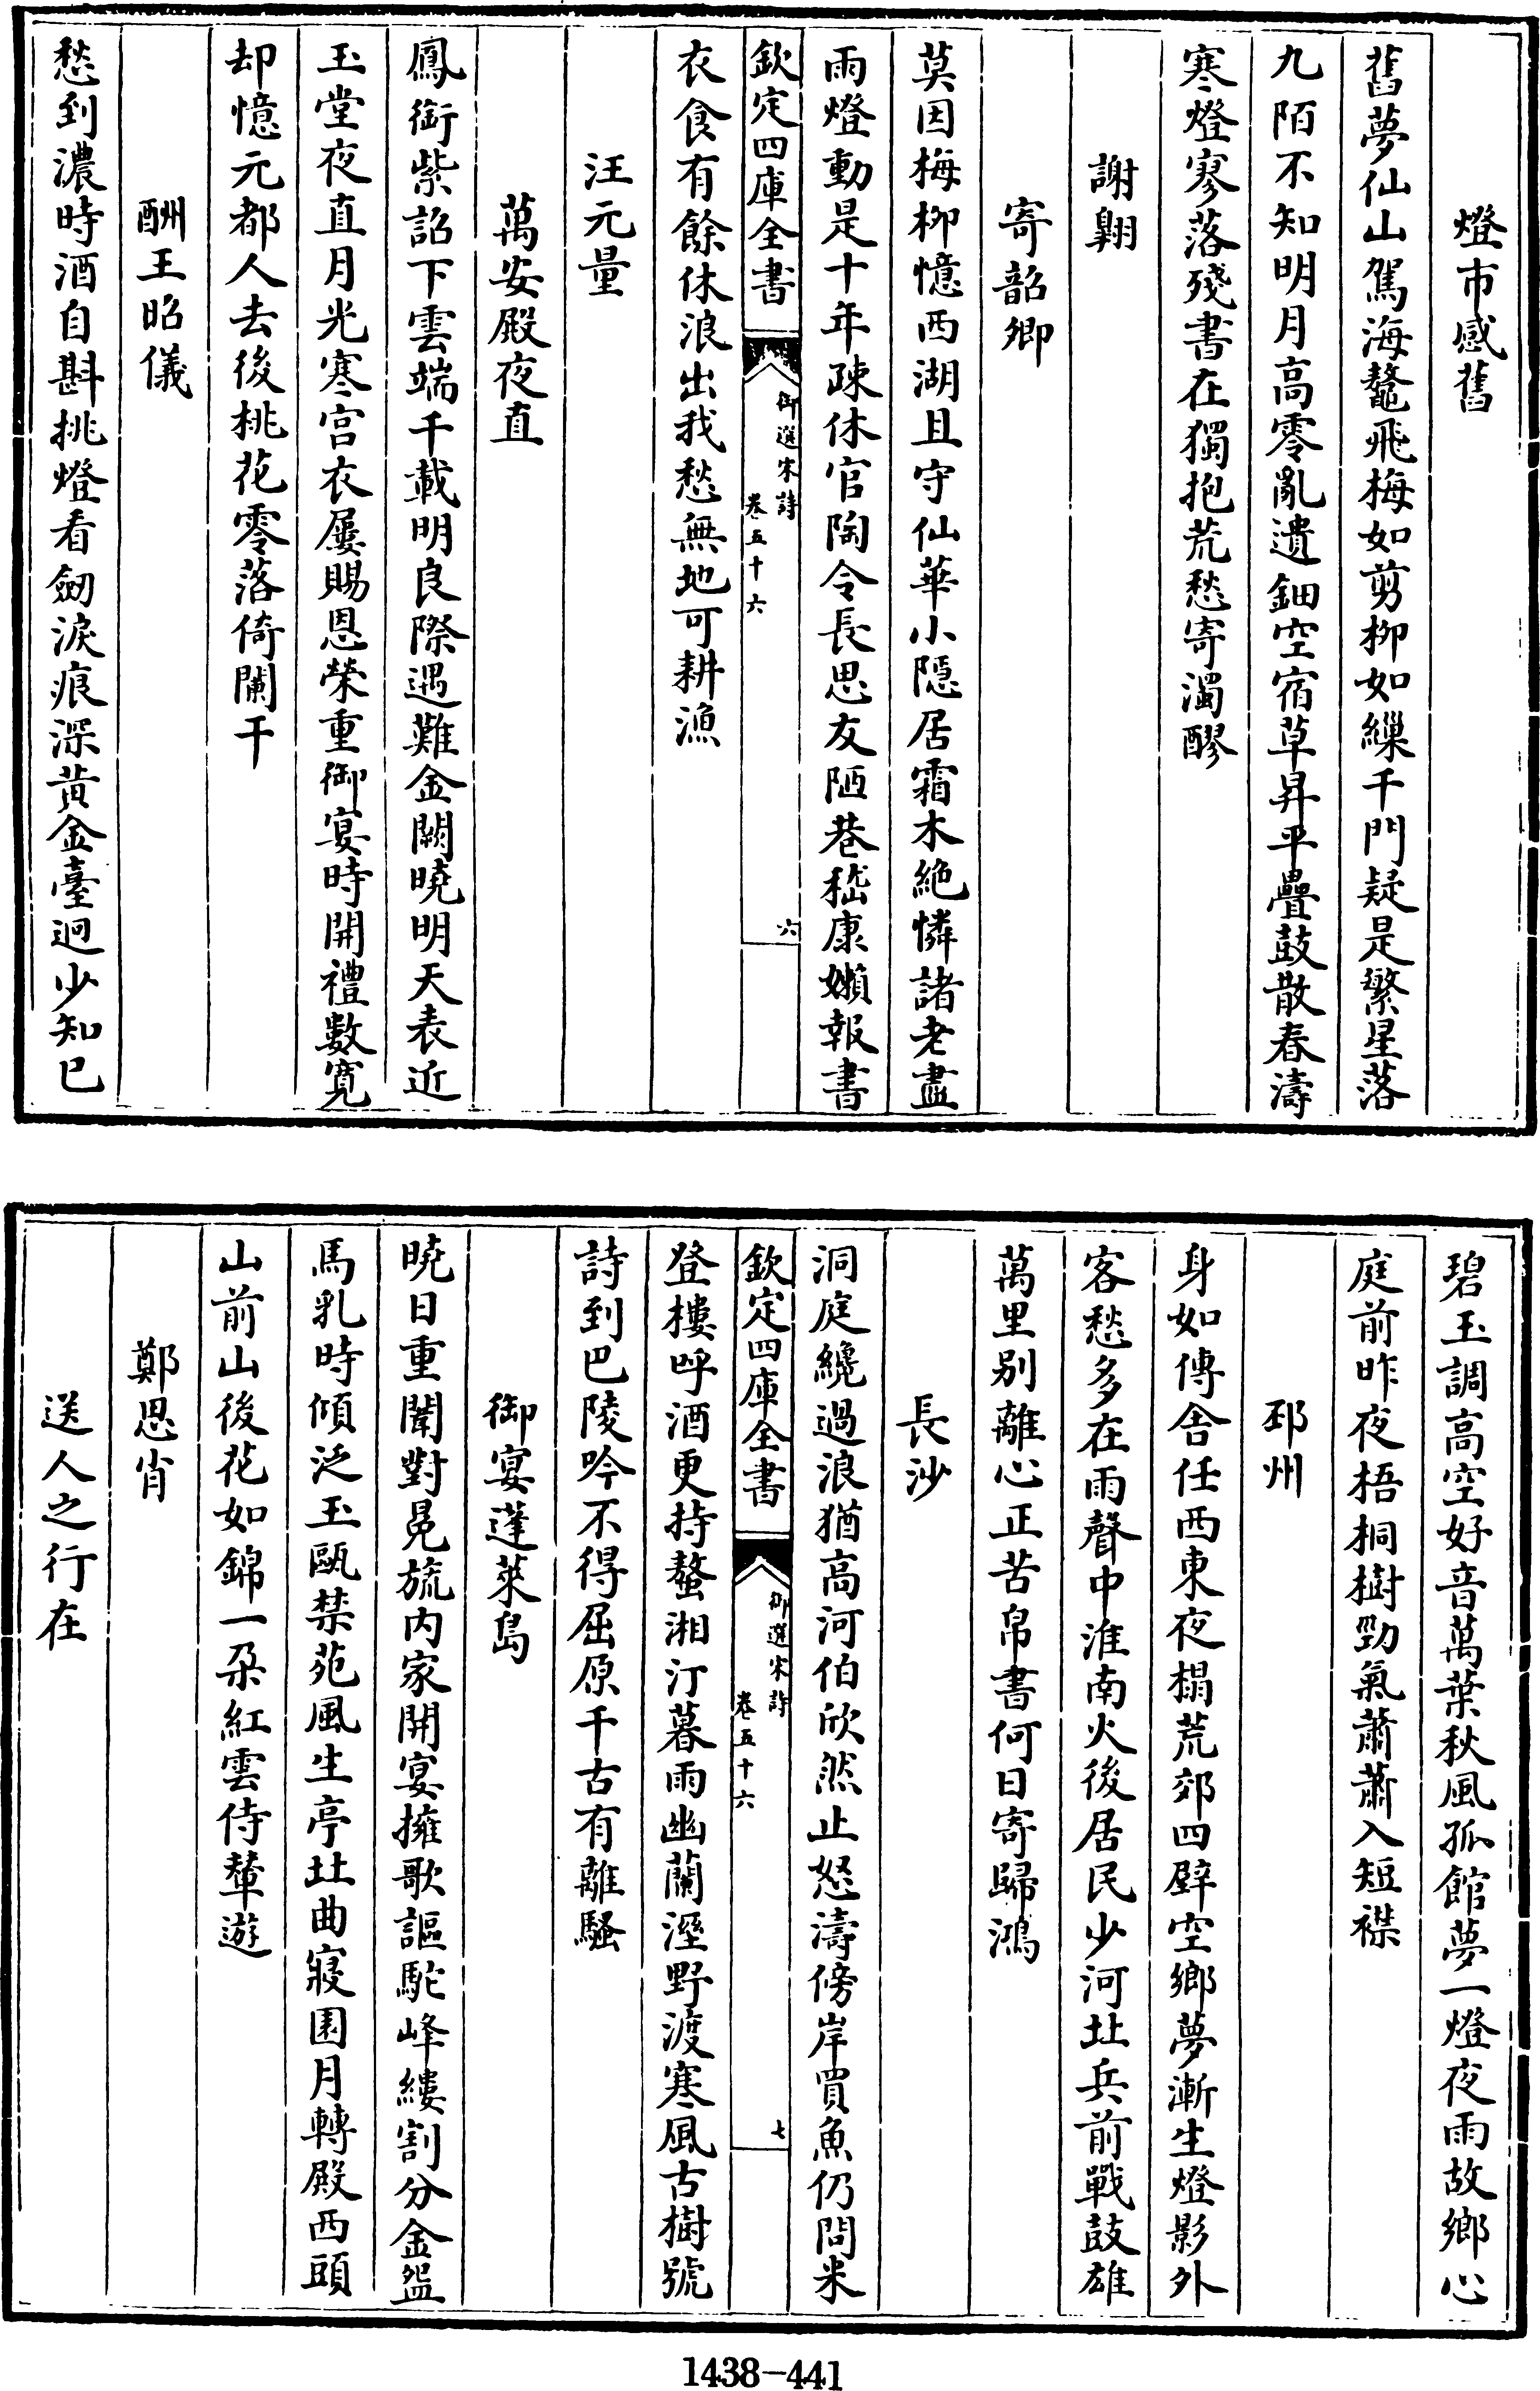 燈市感舊
舊夢仙山駕海鼇飛梅如剪柳如繅千門疑是繁星落
九陌不知明月高零亂遺鈿空宿草昇平疊鼓散春濤
寒燈寥落殘書在獨抱荒愁寄濁醪
謝翺
寄韶卿
莫因梅柳憶西湖且守仙華小隱居霜木絶憐諸老盡
雨燈動是十年疎休官陶令長思友陋巷嵇康嬾報書
欽定四庫全書
御選宋詩
卷五十六
六
衣食有餘休浪出我愁無地可耕漁
汪元量
萬安殿夜直
鳳銜紫詔下雲端千載明良際遇難金闕曉明天表近
玉堂夜直月光寒宫衣屢賜恩榮重御宴時開禮數寛
却憶元都人去後桃花零落倚闌干
酬王昭儀
愁到濃時酒自斟挑燈看劒淚痕深黄金臺迥少知已
碧玉調高空好音萬葉秋風孤館夢一燈夜雨故鄉心
庭前昨夜梧桐樹勁氣蕭蕭入短襟
邳州
身如傳舍任西東夜榻荒郊四壁空鄉夢漸生燈影外
客愁多在雨聲中淮南火後居民少河北兵前戰鼓雄
萬里别離心正苦帛書何日寄歸鴻
長沙
洞庭纔過浪猶高河伯欣然止怒濤傍岸買魚仍問米
欽定四庫全書
御選宋詩
卷五十六
七
登樓呼酒更持螯湘汀暮雨幽蘭溼野渡寒風古樹號
詩到巴陵吟不得屈原千古有離騷
御宴蓬萊島
曉日重闈對冕旒内家開宴擁歌謳駝峰縷割分金盌
馬乳時傾泛玉甌禁苑風生亭北曲寢園月轉殿西頭
山前山後花如錦一朶紅雲侍輦遊
鄭思肖
送人之行在
1438-441